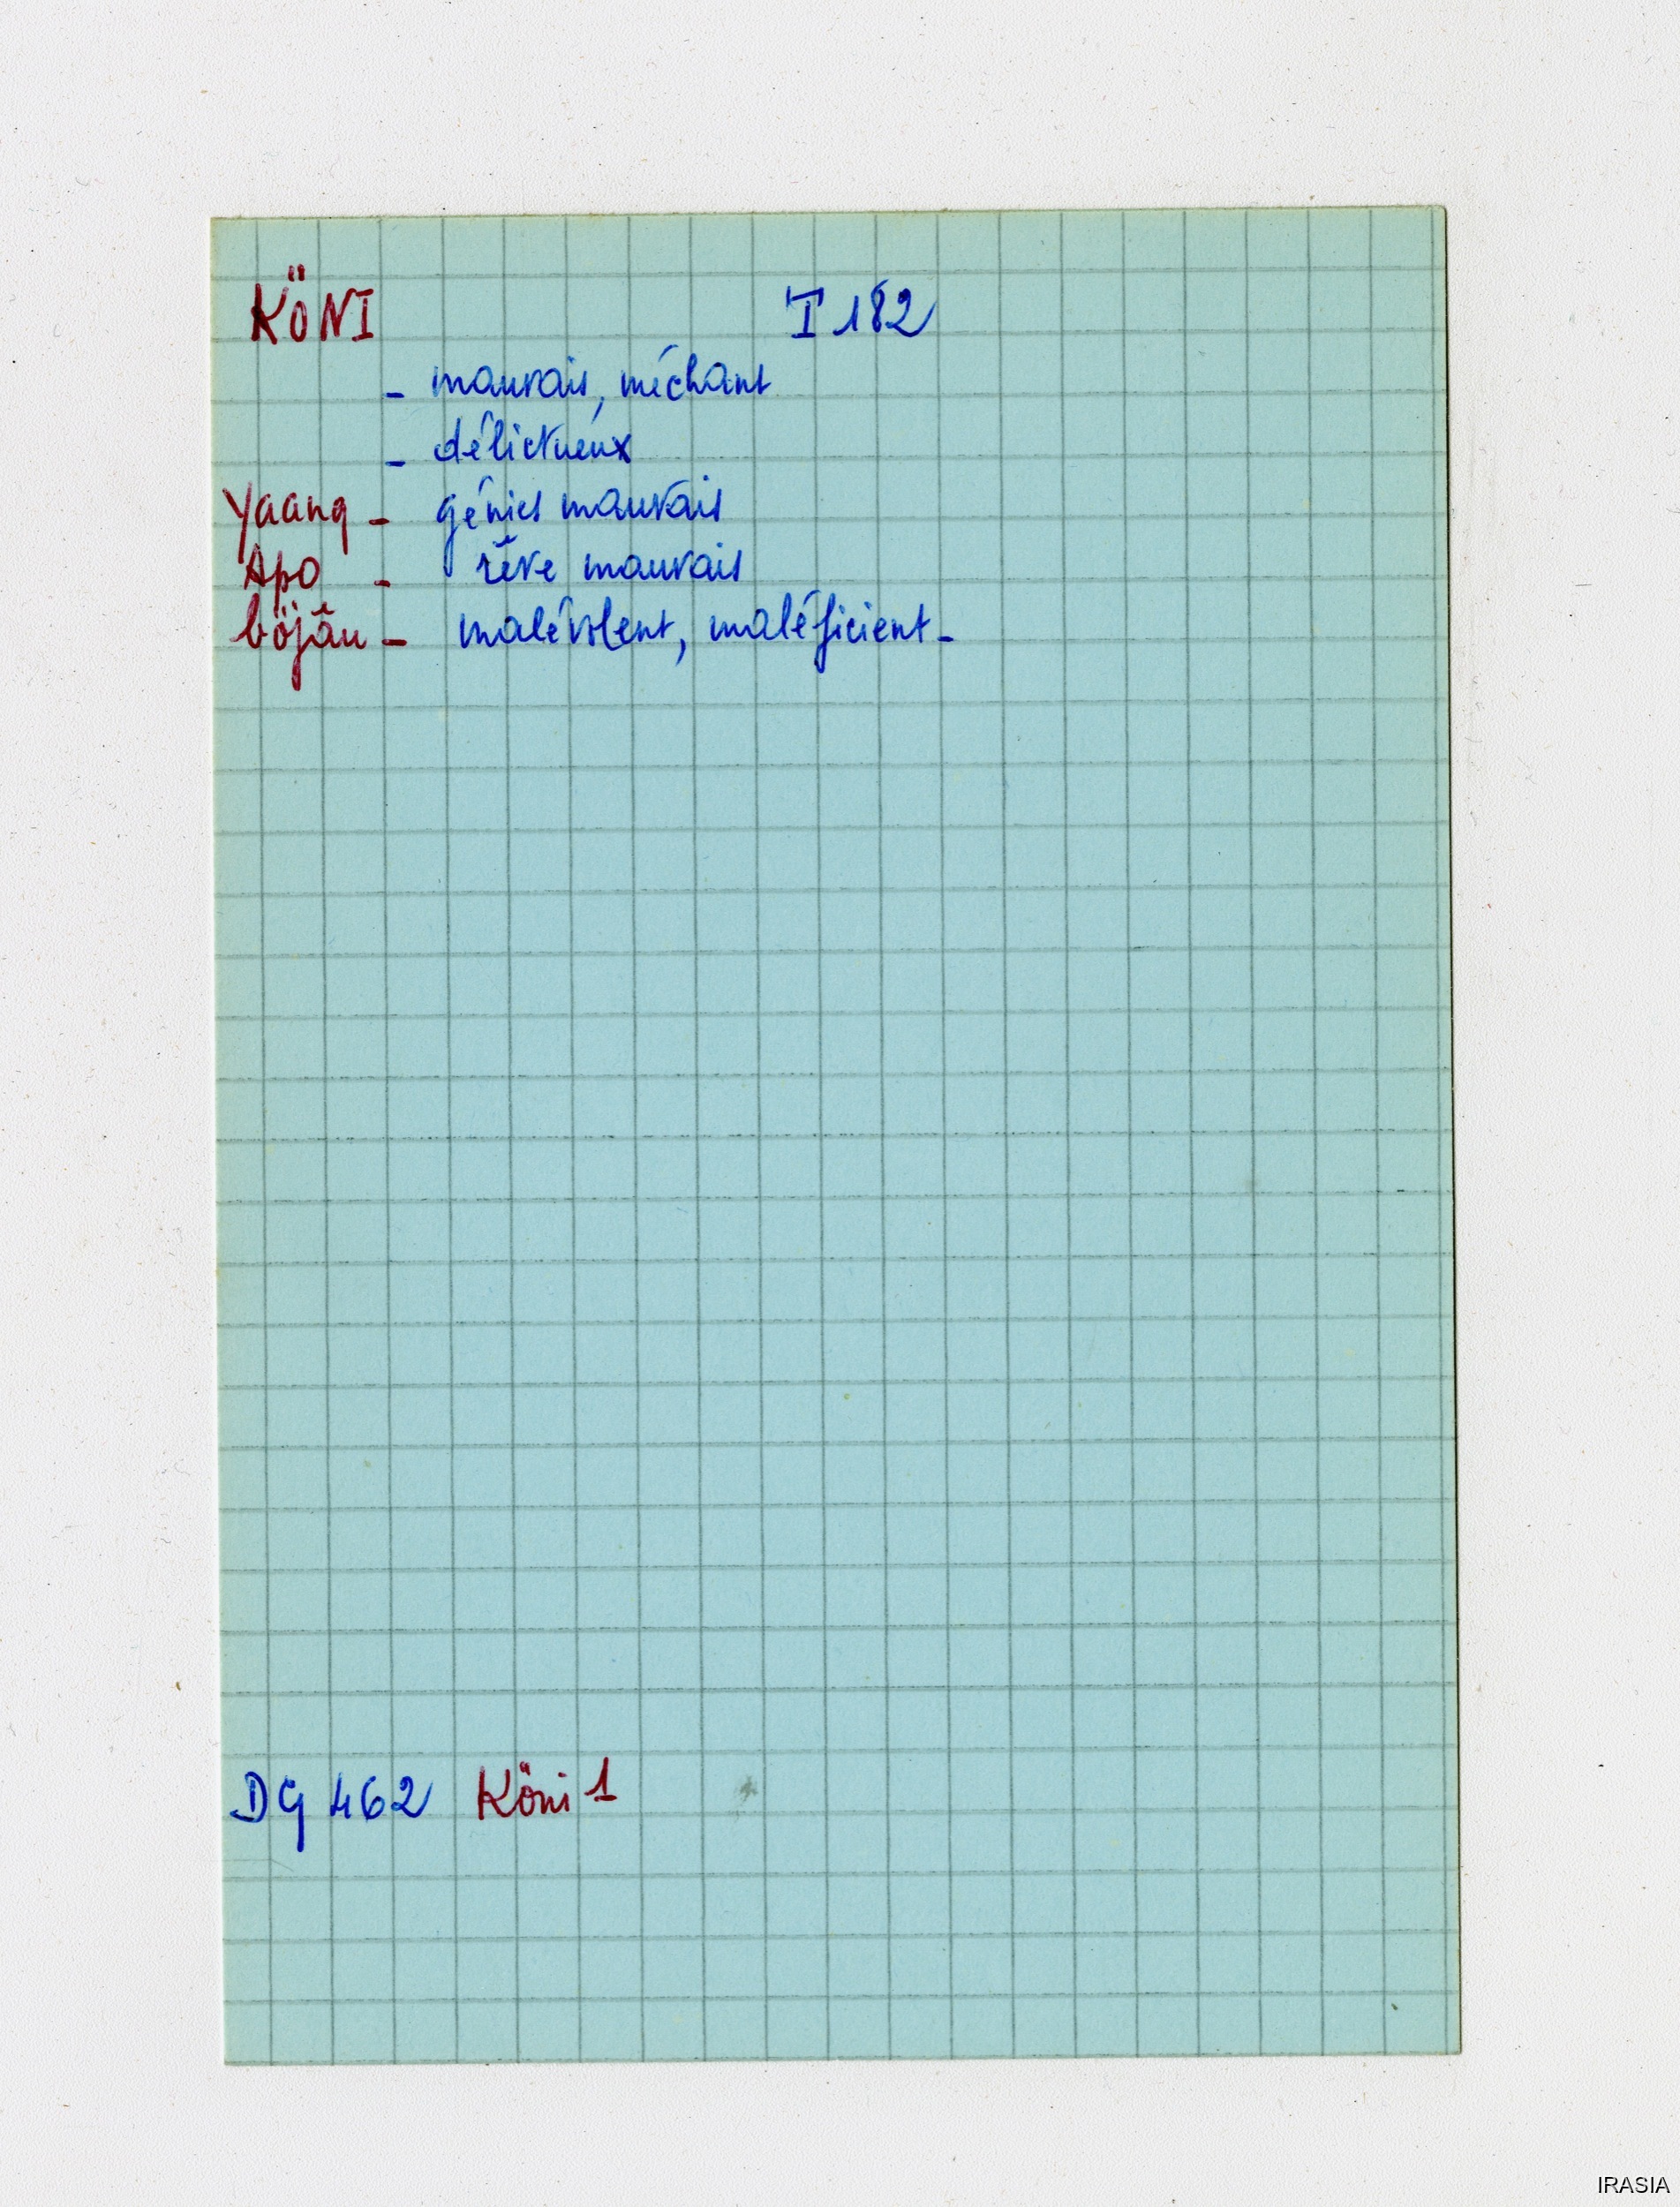 KÖNI I 182
- mauvais, méchant
- délictueux
Yaang - génies mauvais
Apo - rêve mauvais
böjâu - malévolent, maléficient -
DG 462 Köni 1
IRASIA